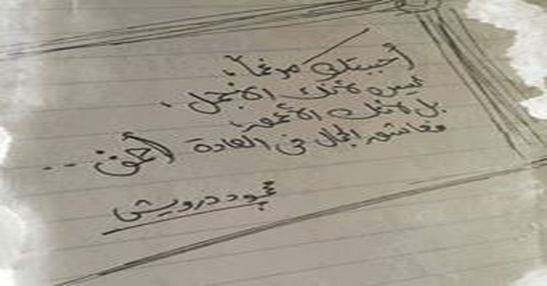 أحببتك مرغماً،
ليس لأنك الأجمل،
بل لأنك الأعمق،
فعاشق الجمال في العادة أحمق ...
محمود درويش